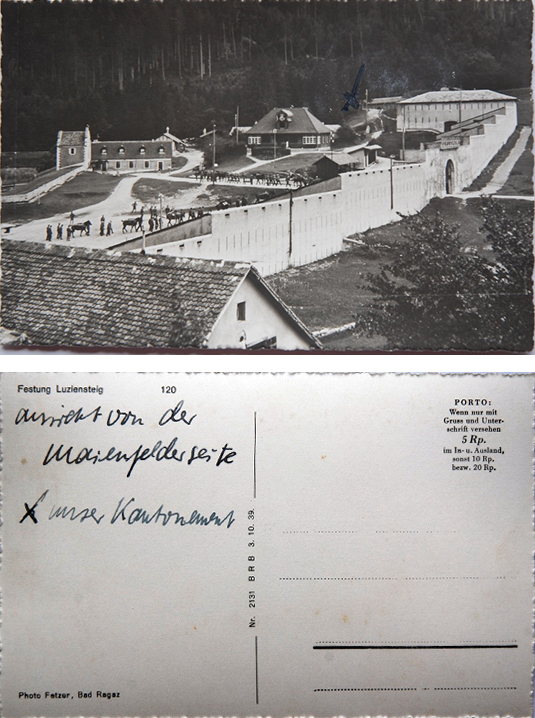 Festung Luziensteig 120
ansicht von der
Maienfelderseite
X unser Kantonement
PORTO:
Wenn nur mit
Gruss und Unter-
schrift versehen
5 Rp.
im In- u. Ausland,
sonst 10 Rp.
bezw. 20 Rp.
Nr. 2131 B R B 3. 10. 39.
Photo Fetzer, Bad Ragaz